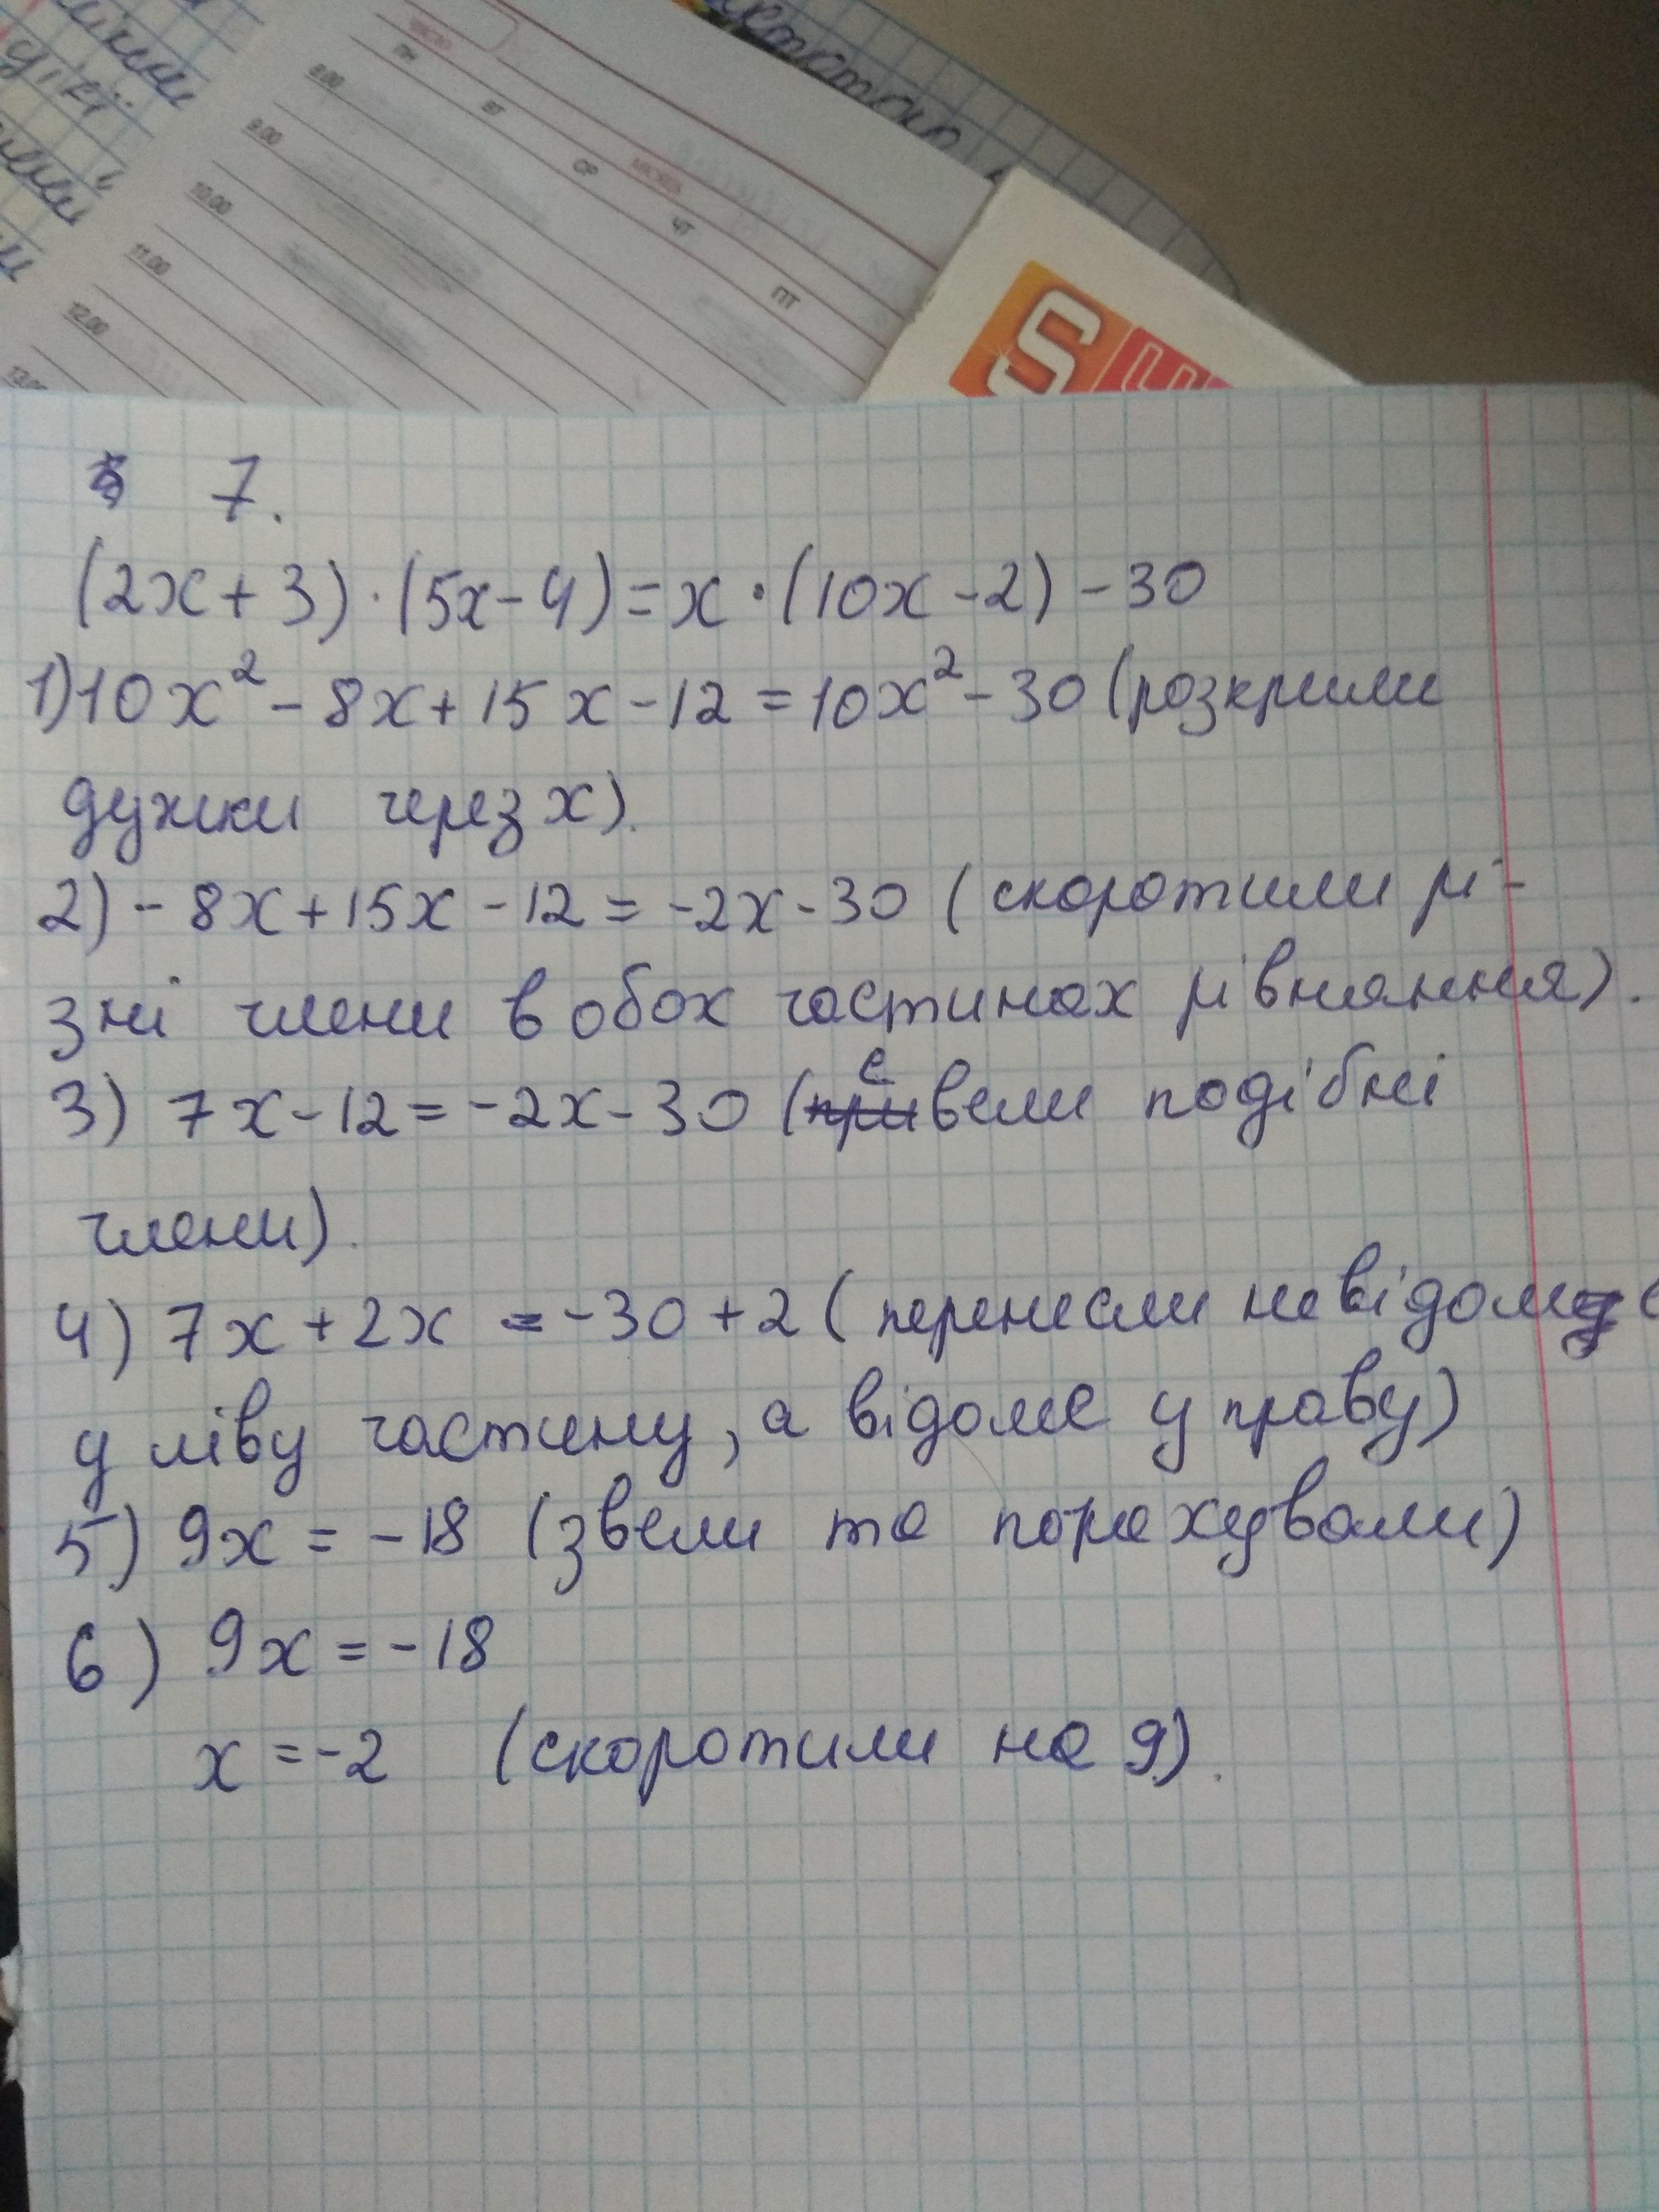 ЧИСЛО
ПН
ВТ
СР
МІСЯЦЬ
ЧТ
ПТ
8.00
9.00
10.00
11.00
12.00
7.
(2x + 3) · (5x - 4) = x · (10x - 2) - 30
1) 10x² - 8x + 15x - 12 = 10x² - 30 (розкрили
дужки через x).
2) - 8x + 15x - 12 = -2x - 30 (скоротили рі-
зні члени в обох частинах рівняння).
3) 7x - 12 = -2x - 30 (звели подібні
члени).
4) 7x + 2x = -30 + 2 (перенесли невідоме
у ліву частину, а відоме у праву)
5) 9x = -18 (звели та порахували)
6) 9x = -18
x = -2 (скоротили на 9).